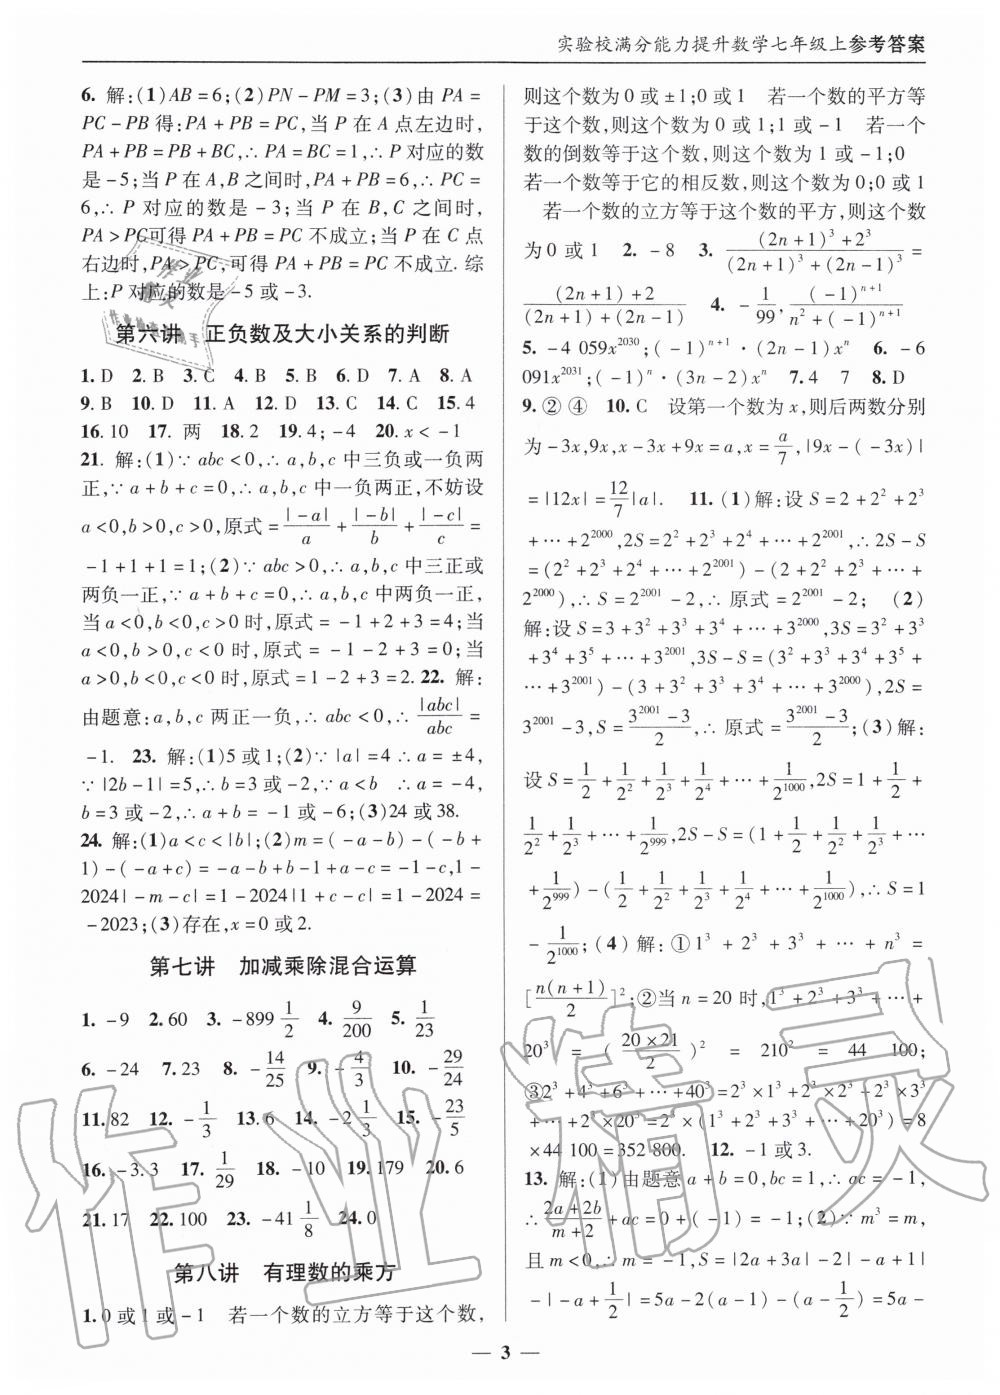 实验校满分能力提升数学七年级上参考答案
6. 解:(1)AB=6;(2)PN-PM=3;(3)由 PA=
PC-PB 得:PA+PB=PC,当 P 在 A 点左边时,
PA+PB=PB+BC,∴PA=BC=1,∴P 对应的数
是-5;当 P 在 A,B 之间时,PA+PB=6,∴PC=
6,∴P 对应的数是-3;当 P 在 B,C 之间时,
PA>PC可得 PA+PB=PC 不成立;当 P 在 C 点
右边时,PA>PC,可得 PA+PB=PC 不成立.综
上:P 对应的数是-5 或-3.
第六讲 正负数及大小关系的判断
1. D 2. B 3. C 4. B 5. B 6. D 7. A 8. A
9. B 10. D 11. A 12. D 13. C 14. C 15. 4
16. 10 17. 两 18. 2 19. 4;-4 20. x<-1
21. 解:(1)∵abc<0,∴a,b,c 中三负或一负两
正,∵a+b+c=0,∴a,b,c 中一负两正,不妨设
a<0,b>0,c>0,原式=|-a|/a+|-b|/b+|-c|/c=
-1+1+1=1;(2)∵abc>0,∴a,b,c 中三正或
两负一正,∵a+b+c=0,∴a,b,c 中两负一正,
当 a<0,b<0,c>0 时,原式=-1+2+3=4;当
a<0,b>0,c<0 时,原式=-1-2+3=0;当
a>0,b<0,c<0 时,原式=1-2+3=2. 22. 解:
由题意:a,b,c 两正一负,∴abc<0,∴|abc|/abc=
-1. 23. 解:(1)5 或1;(2)∵|a|=4∴a=±4,
∵|2b-1|=5,∴b=3 或-2,∵a<b ∴a=-4,
b=3 或-2,∴a+b=-1 或-6;(3)24 或 38.
24. 解:(1)a<c<|b|;(2)m=(-a-b)-(-b+
1)-(-a+c)=-a-b+b-1+a-c=-1-c,1-
2024|-m-c|=1-2024|1+c-c|=1-2024=
-2023;(3)存在,x=0 或 2.
第七讲 加减乘除混合运算
1. -9 2. 60 3. -899 1/2 4. 9/200 5. 1/23
6. -24 7. 23 8. -14/25 9. -4/3 10. -29/24
11. 82 12. -1/3 13. 6 14. -2 1/3 15. -23/5
16. -3.3 17. 1/29 18. -10 19. 179 20. 6
21. 17 22. 100 23. -41 1/8 24. 0
第八讲 有理数的乘方
1. 0 或 1 或-1 若一个数的立方等于这个数,
则这个数为 0 或±1;0 或 1 若一个数的平方等
于这个数,则这个数为 0 或 1;1 或-1 若一个
数的倒数等于这个数,则这个数为 1 或-1;0
若一个数等于它的相反数,则这个数为 0;0 或 1
若一个数的立方等于这个数的平方,则这个数
为 0 或 1 2. -8 3. ((2n+1)³+2³)/((2n+1)³+(2n-1)³)=
((2n+1)+2)/((2n+1)+(2n-1)) 4. -1/99,(-1)ⁿ⁺¹/(n²+(-1)ⁿ⁺¹)
5. -4 059x²⁰³⁰;(-1)ⁿ⁺¹·(2n-1)xⁿ 6. -6
091x²⁰³¹;(-1)ⁿ·(3n-2)xⁿ 7. 4 7 8. D
9. ② ④ 10. C 设第一个数为 x,则后两数分别
为-3x,9x,x-3x+9x=a,x=a/7,|9x-(-3x)|
=|12x|=12/7|a|. 11. (1)解:设 S=2+2²+2³
+…+2²⁰⁰⁰,2S=2²+2³+2⁴+…+2²⁰⁰¹,∴2S-S
=(2²+2³+2⁴+…+2²⁰⁰¹)-(2+2²+2³+…+
2²⁰⁰⁰),∴S=2²⁰⁰¹-2,∴原式=2²⁰⁰¹-2; (2)
解:设 S=3+3²+3³+3⁴+…+3²⁰⁰⁰,3S=3²+3³
+3⁴+3⁵+…+3²⁰⁰¹,3S-S=(3²+3³+3⁴+3⁵+
…+3²⁰⁰¹)-(3+3²+3³+3⁴+…+3²⁰⁰⁰),2S=
3²⁰⁰¹-3,S=(3²⁰⁰¹-3)/2,∴原式=(3²⁰⁰¹-3)/2;(3)解:
设 S=1/2+1/2²+1/2³+1/2⁴+…+1/2¹⁰⁰⁰,2S=1+1/2+
1/2²+1/2³+…+1/2⁹⁹⁹,2S-S=(1+1/2+1/2²+1/2³+…
+1/2⁹⁹⁹)-(1/2+1/2²+1/2³+1/2⁴+…+1/2¹⁰⁰⁰),∴S=1
-1/2¹⁰⁰⁰;(4)解:①1³+2³+3³+…+n³=
[n(n+1)/2]²;②当 n=20 时,1³+2³+3³+…+
20³=(20×21/2)²=210²=44 100;
③2³+4³+6³+…+40³=2³×1³+2³×2³+2³×3³
+…+2³×20³=2³×(1³+2³+3³+…+20³)=8
×44 100=352 800. 12. -1 或 3.
13. 解:(1)由题意 a+b=0,bc=1,∴ac=-1,
∴(2a+2b)/2+ac=0+(-1)=-1;(2)∵m³=m,
且 m<0,∴m=-1,S=|2a+3a|-2|-a+1|
-|-a+1/2|=5a-2(a-1)-(a-1/2)=5a-
— 3 —
作业精灵